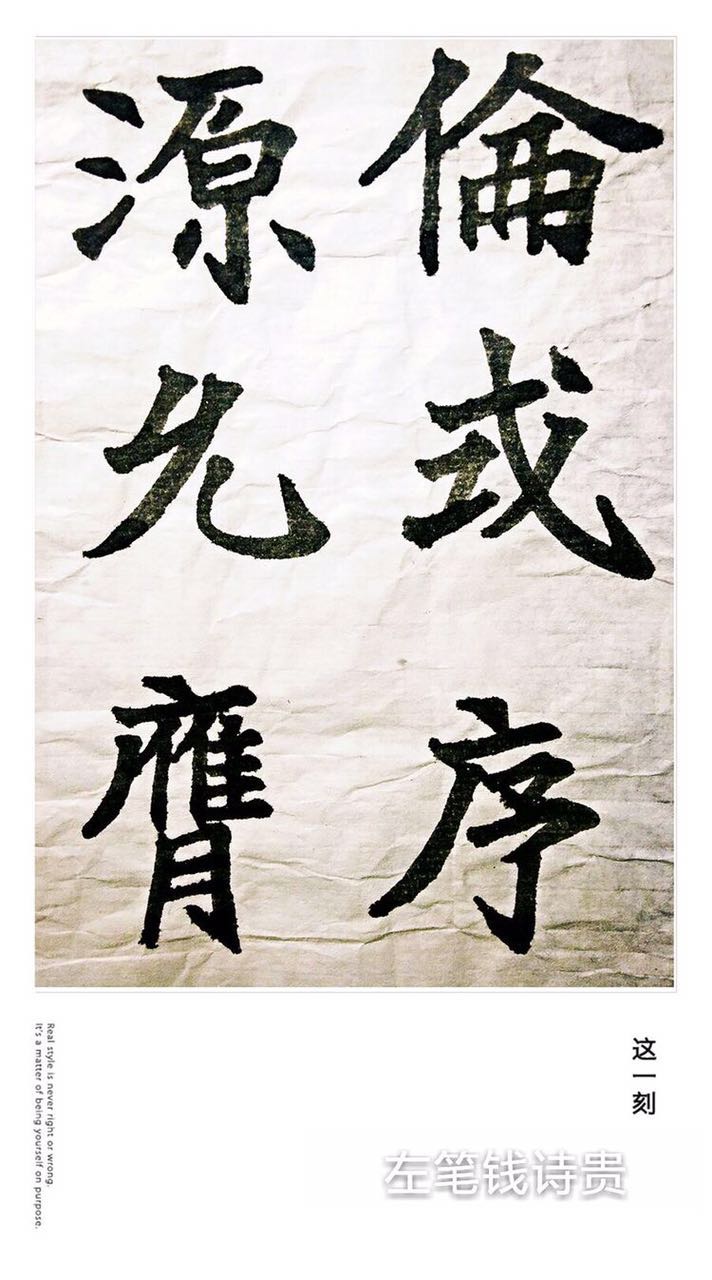 倫式序
源膺
这一刻
左笔钱诗贵
Real style is never right or wrong.
It's a matter of being yourself on purpose.